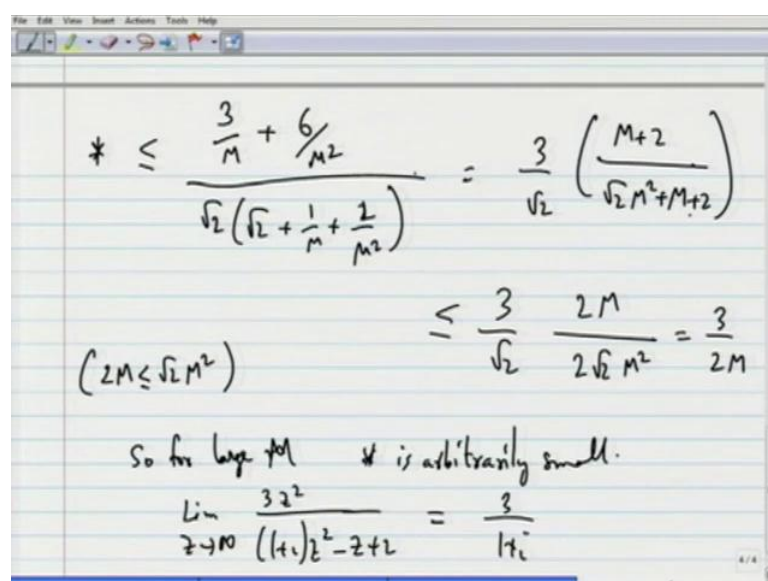 File Edit View Insert Actions Tools Help
* ≤ (3/M + 6/M²) / (√2(√2 + 1/M + 2/M²)) = 3/√2 ((M+2)/(√2M²+M+2))
≤ 3/√2 2M/(2√2 M²) = 3/2M
(2M ≤ √2M²)
So for large M * is arbitrarily small.
Lim z→∞ 3z²/((1+i)z²-z+2) = 3/(1+i)
4/4